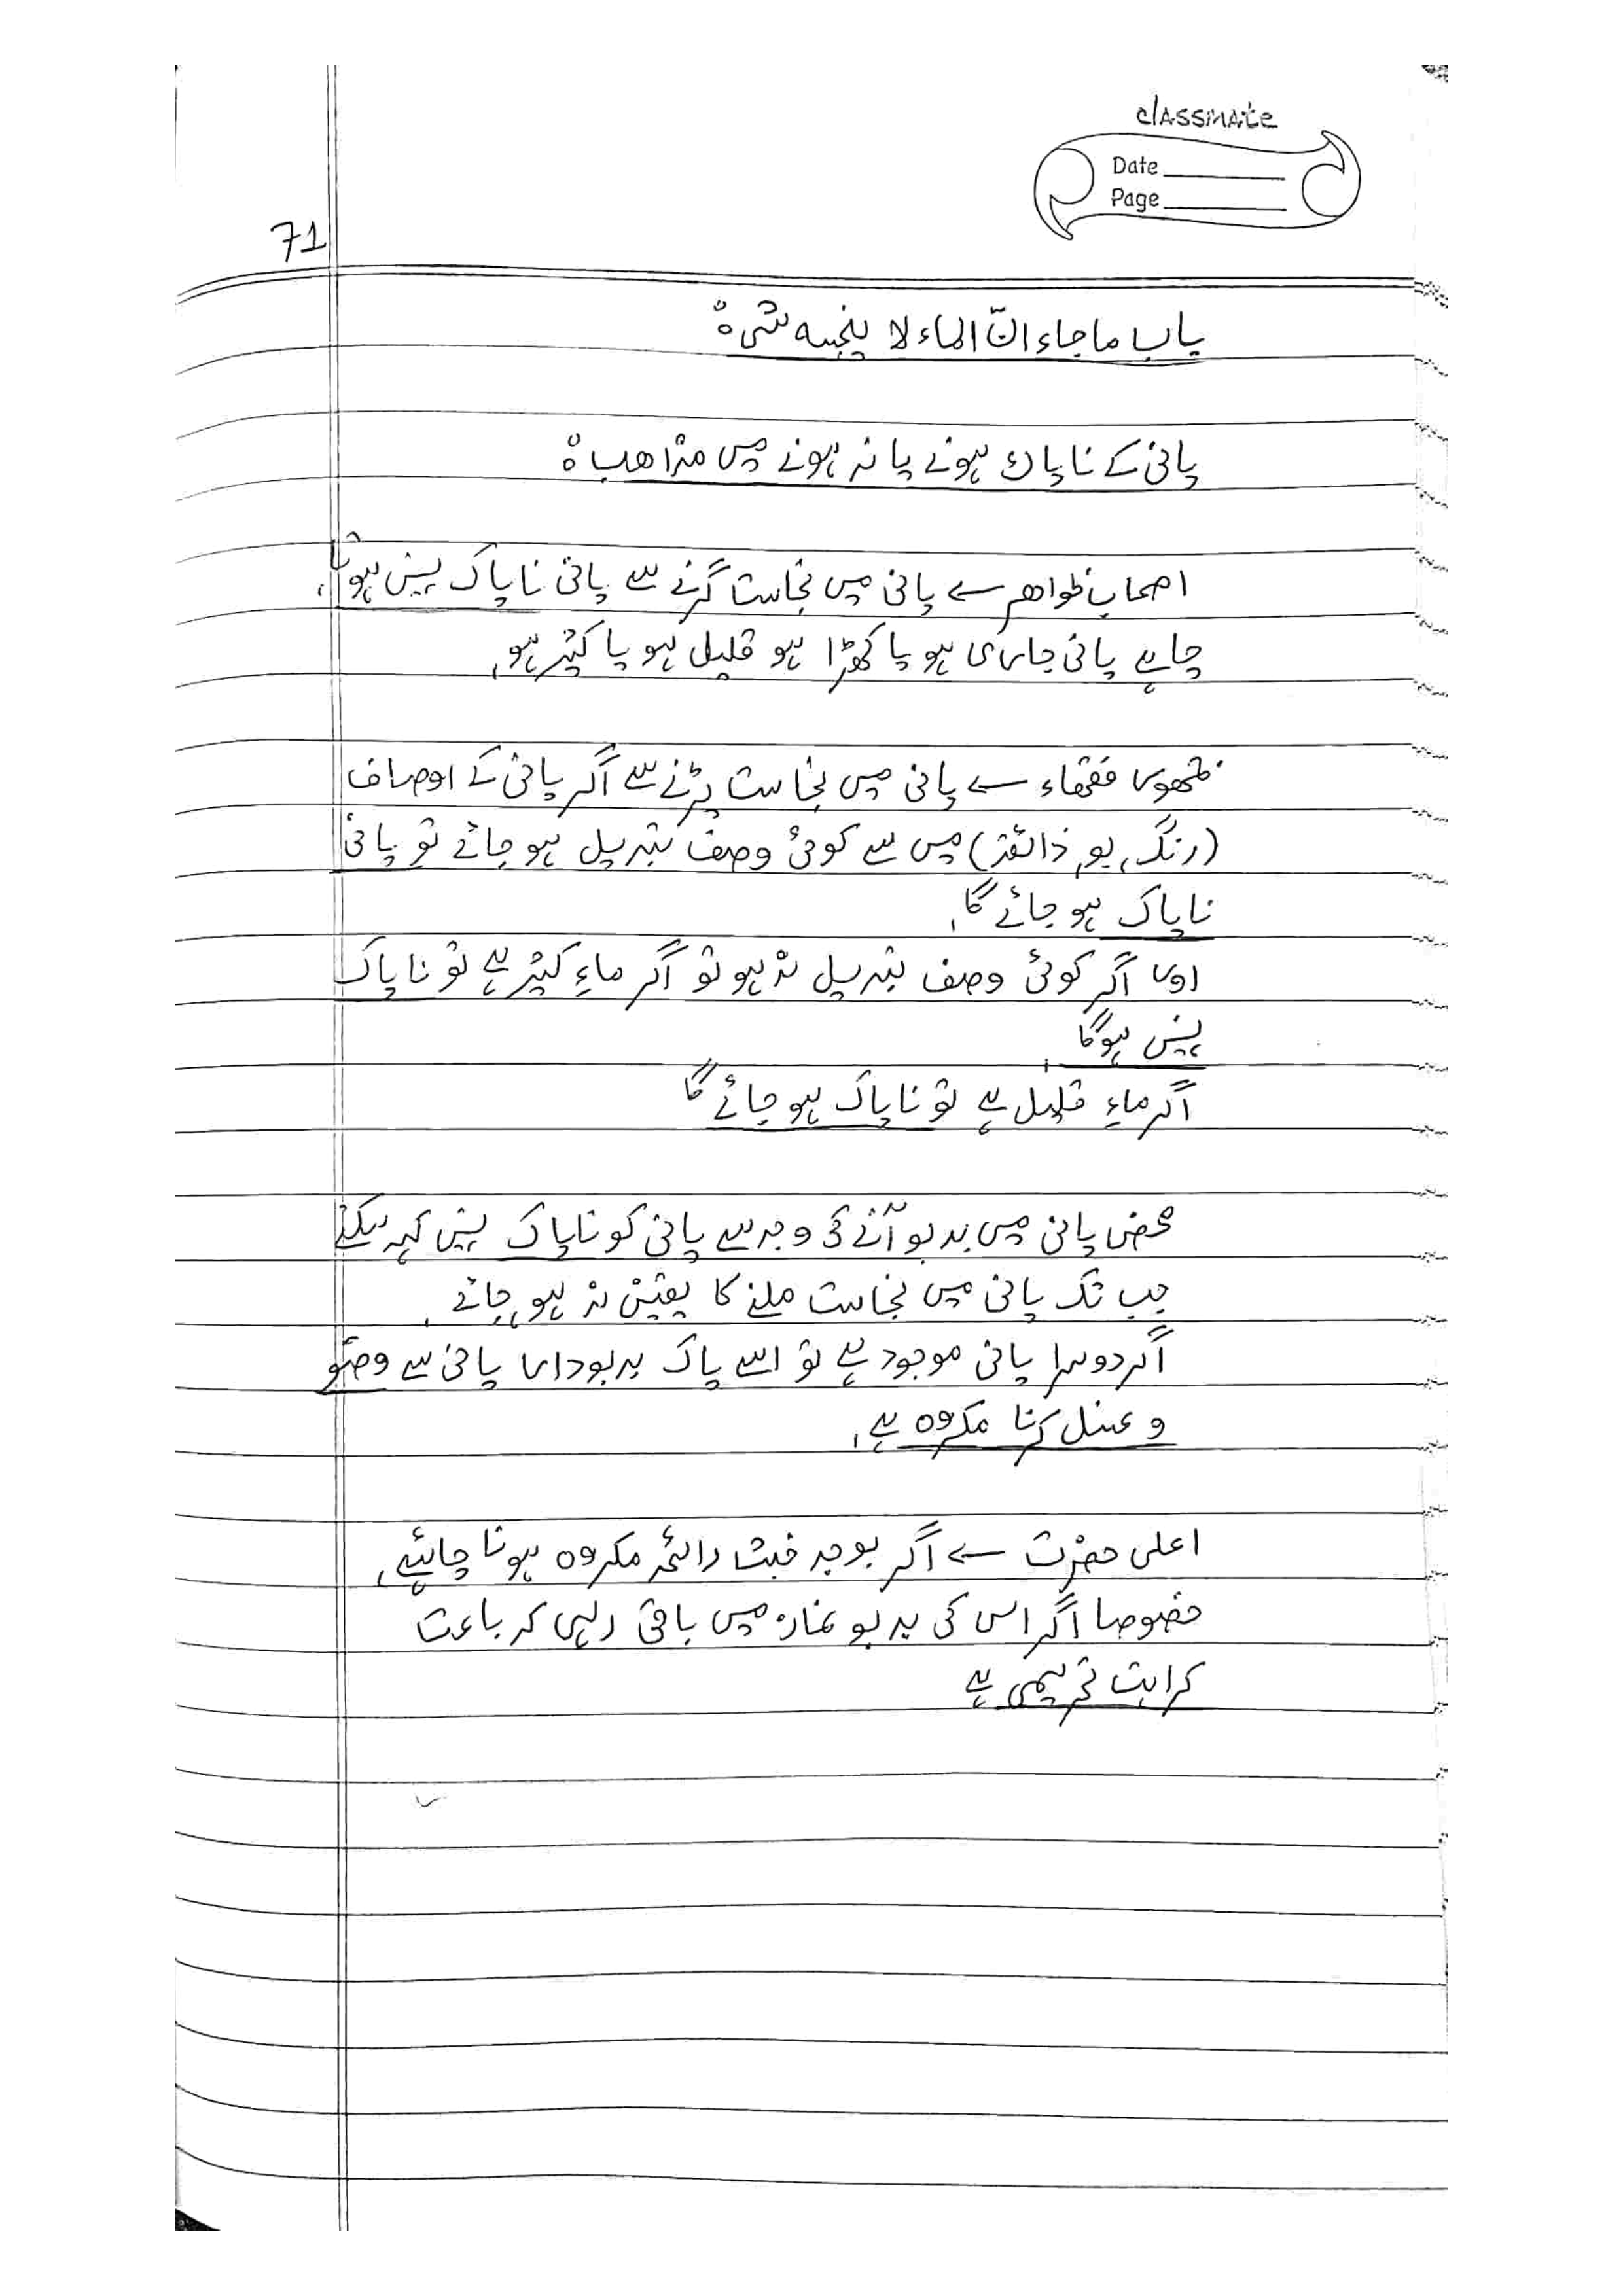 classmate
Date
Page
71
باب ماجاء انّ الماء لا ینجسہ شیء
پانی کے ناپاک ہونے یا نہ ہونے میں مذاھب
اصحاب ظواھر ← پانی میں نجاست گرنے سے پانی ناپاک نہیں ہوتا،
چاہے پانی جاری ہو یا کھڑا ہو قلیل ہو یا کثیر ہو،
جمھور فقھاء ← پانی میں نجاست پڑنے سے اگر پانی کے اوصاف
(رنگ، بو، ذائقہ) میں سے کوئی وصف تبدیل ہو جائے تو پانی
ناپاک ہو جائے گا،
اور اگر کوئی وصف تبدیل نہ ہو تو اگر ماءِ کثیر ہے تو ناپاک
نہیں ہوگا،
اگر ماءِ قلیل ہے تو ناپاک ہو جائے گا
محض پانی میں بدبو آنے کی وجہ سے پانی کو ناپاک نہیں کہہ سکتے
جب تک پانی میں نجاست ملنے کا یقین نہ ہو جائے،
اگر دوسرا پانی موجود ہے تو اسے پاک بدبودار پانی سے وضو
و غسل کرنا مکروہ ہے،
اعلی حضرت ← اگر بوجہ خبث رائحہ مکروہ ہونا چاہئیے،
خصوصا اگر اس کی بدبو نماز میں باقی رہی کہ باعث
کراہت تحریمی ہے